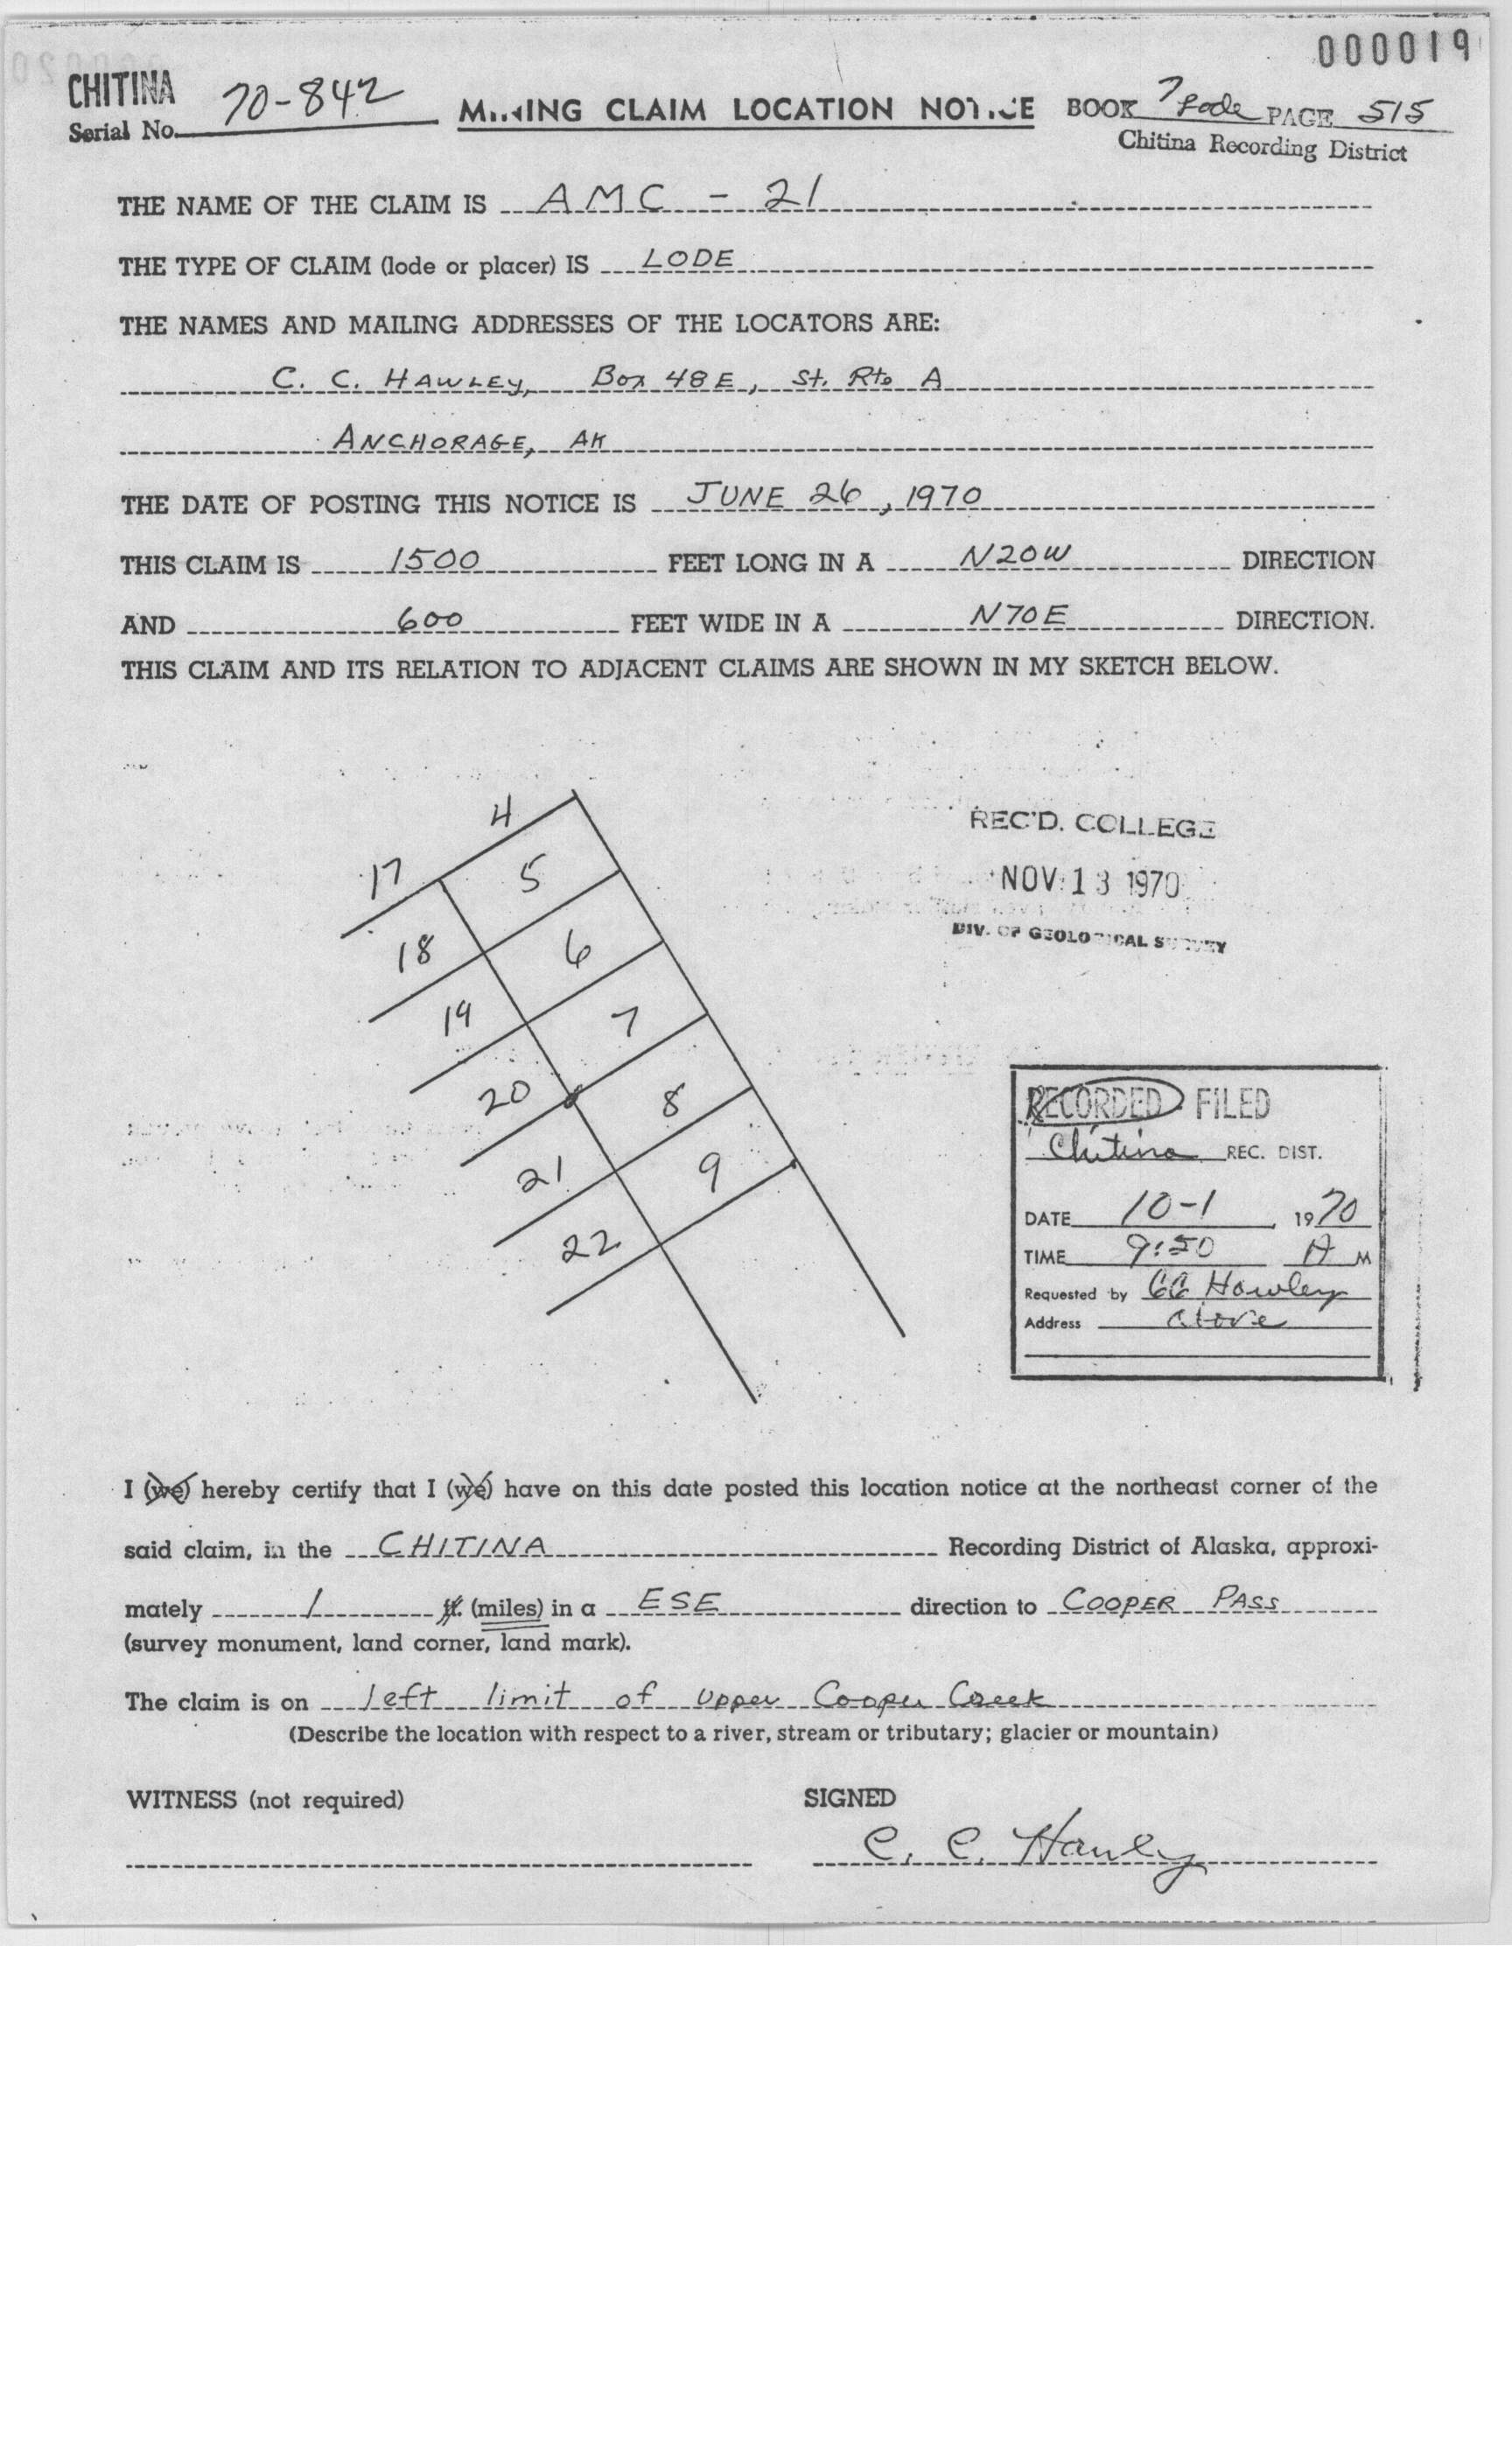 000019
CHITINA
Serial No. 70-842 MINING CLAIM LOCATION NOTICE BOOK 7 Lode PAGE 515
Chitina Recording District
THE NAME OF THE CLAIM IS AMC - 21
THE TYPE OF CLAIM (lode or placer) IS LODE
THE NAMES AND MAILING ADDRESSES OF THE LOCATORS ARE:
C. C. HAWLEY, Box 48E, St. Rte A
ANCHORAGE, AK
THE DATE OF POSTING THIS NOTICE IS JUNE 26, 1970
THIS CLAIM IS 1500 FEET LONG IN A N20W DIRECTION
AND 600 FEET WIDE IN A N70E DIRECTION.
THIS CLAIM AND ITS RELATION TO ADJACENT CLAIMS ARE SHOWN IN MY SKETCH BELOW.
4
17
5
18
6
19
7
20
8
21
9
22
REC'D. COLLEGE
NOV 13 1970
DIV. OF GEOLOGICAL SURVEY
RECORDED FILED
Chitina REC. DIST.
DATE 10-1 1970
TIME 9:50 A M
Requested by CC Hawley
Address above
I (we) hereby certify that I (we) have on this date posted this location notice at the northeast corner of the
said claim, in the CHITINA Recording District of Alaska, approxi-
mately 1 ft. (miles) in a ESE direction to COOPER PASS
(survey monument, land corner, land mark).
The claim is on left limit of upper Cooper Creek
(Describe the location with respect to a river, stream or tributary; glacier or mountain)
WITNESS (not required) SIGNED
C. C. Hawley